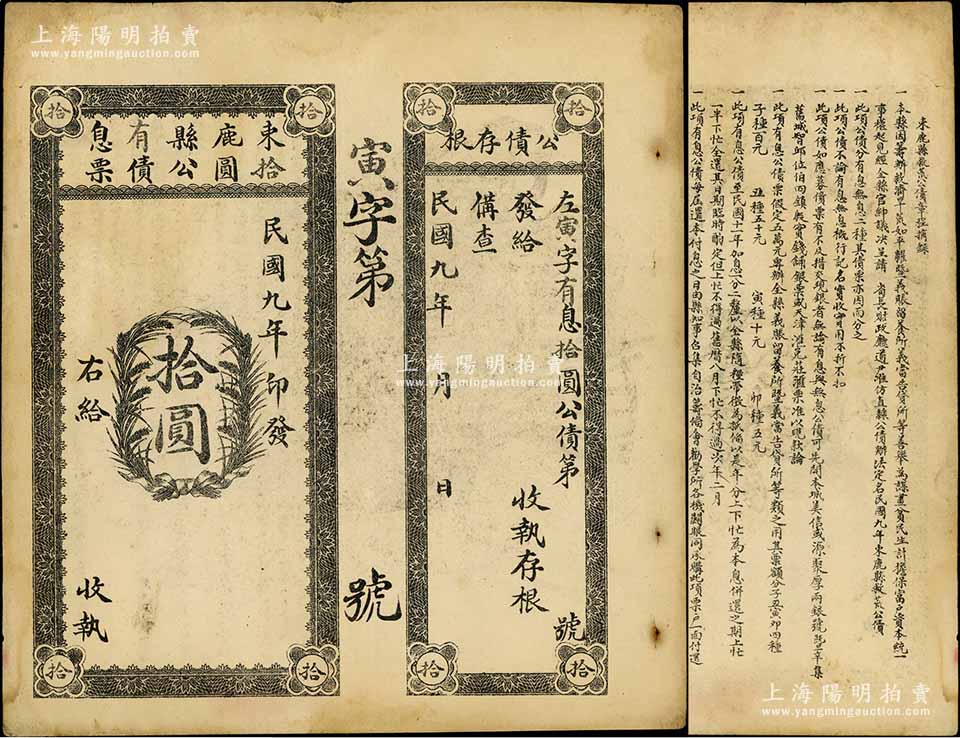 上海陽明拍賣
www.yangmingauction.com
束鹿縣有息
拾圓公債票
民國九年 印發
拾圓
右給
收執
拾
拾
拾
拾
寅字第 號
公債存根
左寅字有息拾圓公債第 號
發給 收執存根
備查
民國九年 月 日
拾
拾
拾
拾
上海陽明拍賣
www.yangmingauction.com
束鹿縣救荒公債章程摘錄
一 本縣因籌辦救濟旱荒如平糶暨義賑留養所義當告貸所等善舉為謀畫貧民生計擔保富戶資本統一
事權起見經全縣官紳議决呈請 省長財政廳道尹准仿直隸公債辦法定名民國九年束鹿縣救荒公債
一 此項公債分有息無息二種其債票亦因而分之
一 此項公債不論有息無息概行記名實收實用不折不扣
一 此項公債如應募債票有不及措交現銀者無論有息與無息公債可先開本城美信成源聚厚兩銀號暨辛集
舊城智邱位伯四鎮殷實錢舖銀票或天津淮兌莊滙票准以現款論
一 此項有息公債票假定五萬元專辦全縣義賑留養所暨義當告貸所等類之用其票額分子丑寅卯四種
子種百元 丑種五十元 寅種十元 卯種五元
一 此項有息公債至民國十一年加息一分二釐以全縣隨糧帶徵為試備以是年分上下忙為本息併還之期上忙
一半下忙全還其日期臨時酌定但上忙不得過舊曆八月下忙不得過次年二月
一 此項有息公債每屆還本付息之日由縣知事召集自治籌備會勸學所各機關眼同承購此項票戶一面付還
上海陽明拍賣
www.yangmingauction.com